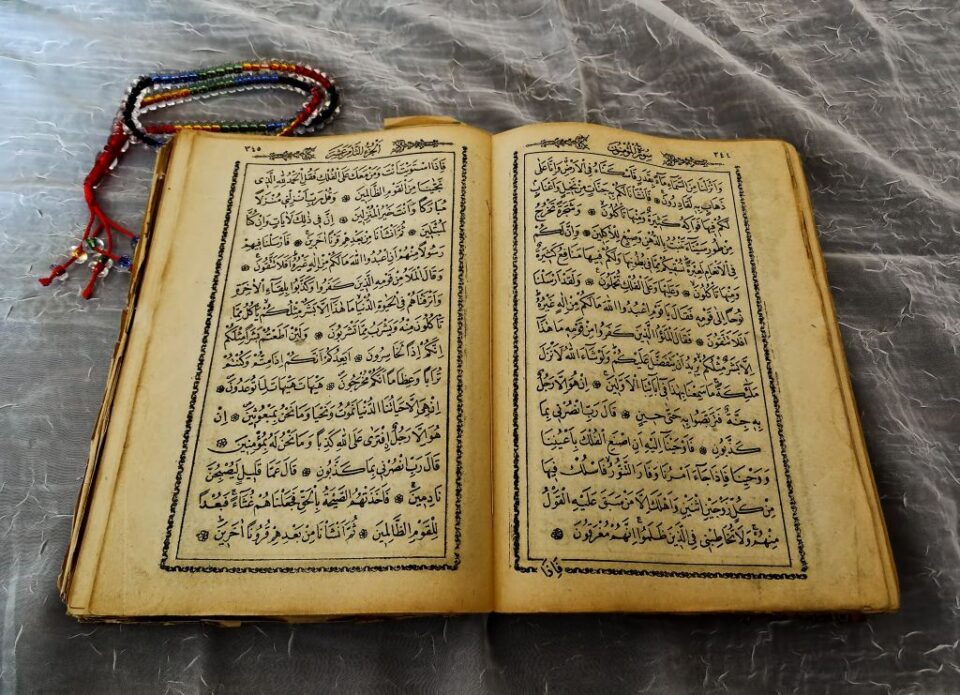 سُورَةُ الْمُؤْمِنُونَ ٣٤٤
وَاَنْزَلْنَا مِنَ السَّمَاءِ مَاءً بِقَدَرٍ فَاَسْكَنَّاهُ فِي الْاَرْضِ وَاِنَّا عَلٰى
ذَهَابٍ بِهِ لَقَادِرُونَ ۞ فَاَنْشَاْنَا لَكُمْ بِهِ جَنَّاتٍ مِنْ نَخِيلٍ وَاَعْنَابٍ
لَكُمْ فِيهَا فَوَاكِهُ كَثِيرَةٌ وَمِنْهَا تَاْكُلُونَ ۞ وَشَجَرَةً تَخْرُجُ
مِنْ طُورِ سَيْنَاءَ تَنْبُتُ بِالدُّهْنِ وَصِبْغٍ لِلْاٰكِلِينَ ۞ وَاِنَّ لَكُمْ
فِي الْاَنْعَامِ لَعِبْرَةً نُسْقِيكُمْ مِمَّا فِي بُطُونِهَا وَلَكُمْ فِيهَا مَنَافِعُ كَثِيرَةٌ
وَمِنْهَا تَاْكُلُونَ ۞ وَعَلَيْهَا وَعَلَى الْفُلْكِ تُحْمَلُونَ ۞ وَلَقَدْ اَرْسَلْنَا
نُوحًا اِلٰى قَوْمِهِ فَقَالَ يَا قَوْمِ اعْبُدُوا اللّٰهَ مَا لَكُمْ مِنْ اِلٰهٍ غَيْرُهُ
اَفَلَا تَتَّقُونَ ۞ فَقَالَ الْمَلَؤُا الَّذِينَ كَفَرُوا مِنْ قَوْمِهِ مَا هٰذَا
اِلَّا بَشَرٌ مِثْلُكُمْ يُرِيدُ اَنْ يَتَفَضَّلَ عَلَيْكُمْ وَلَوْ شَاءَ اللّٰهُ لَاَنْزَلَ
مَلٰئِكَةً مَا سَمِعْنَا بِهٰذَا فِي اٰبَائِنَا الْاَوَّلِينَ ۞ اِنْ هُوَ اِلَّا رَجُلٌ
بِهِ جِنَّةٌ فَتَرَبَّصُوا بِهِ حَتّٰى حِينٍ ۞ قَالَ رَبِّ انْصُرْنِي بِمَا
كَذَّبُونِ ۞ فَاَوْحَيْنَا اِلَيْهِ اَنِ اصْنَعِ الْفُلْكَ بِاَعْيُنِنَا
وَوَحْيِنَا فَاِذَا جَاءَ اَمْرُنَا وَفَارَ التَّنُّورُ فَاسْلُكْ فِيهَا
مِنْ كُلٍّ زَوْجَيْنِ اثْنَيْنِ وَاَهْلَكَ اِلَّا مَنْ سَبَقَ عَلَيْهِ الْقَوْلُ
مِنْهُمْ وَلَا تُخَاطِبْنِي فِي الَّذِينَ ظَلَمُوا اِنَّهُمْ مُغْرَقُونَ ۞
فَاِذَا
اَلْجُزْءُ الثَّامِنَ عَشَرَ ٣٤٥
فَاِذَا اسْتَوَيْتَ اَنْتَ وَمَنْ مَعَكَ عَلَى الْفُلْكِ فَقُلِ الْحَمْدُ لِلّٰهِ الَّذِي
نَجّٰينَا مِنَ الْقَوْمِ الظَّالِمِينَ ۞ وَقُلْ رَبِّ اَنْزِلْنِي مُنْزَلًا
مُبَارَكًا وَاَنْتَ خَيْرُ الْمُنْزِلِينَ ۞ اِنَّ فِي ذٰلِكَ لَاٰيَاتٍ وَاِنْ كُنَّا
لَمُبْتَلِينَ ۞ ثُمَّ اَنْشَاْنَا مِنْ بَعْدِهِمْ قَرْنًا اٰخَرِينَ ۞ فَاَرْسَلْنَا فِيهِمْ
رَسُولًا مِنْهُمْ اَنِ اعْبُدُوا اللّٰهَ مَا لَكُمْ مِنْ اِلٰهٍ غَيْرُهُ اَفَلَا تَتَّقُونَ ۞
وَقَالَ الْمَلَاُ مِنْ قَوْمِهِ الَّذِينَ كَفَرُوا وَكَذَّبُوا بِلِقَاءِ الْاٰخِرَةِ
وَاَتْرَفْنَاهُمْ فِي الْحَيٰوةِ الدُّنْيَا مَا هٰذَا اِلَّا بَشَرٌ مِثْلُكُمْ يَاْكُلُ مِمَّا
تَاْكُلُونَ مِنْهُ وَيَشْرَبُ مِمَّا تَشْرَبُونَ ۞ وَلَئِنْ اَطَعْتُمْ بَشَرًا مِثْلَكُمْ
اِنَّكُمْ اِذًا لَخَاسِرُونَ ۞ اَيَعِدُكُمْ اَنَّكُمْ اِذَا مِتُّمْ وَكُنْتُمْ
تُرَابًا وَعِظَامًا اَنَّكُمْ مُخْرَجُونَ ۞ هَيْهَاتَ هَيْهَاتَ لِمَا تُوعَدُونَ ۞
اِنْ هِيَ اِلَّا حَيَاتُنَا الدُّنْيَا نَمُوتُ وَنَحْيَا وَمَا نَحْنُ بِمَبْعُوثِينَ ۞ اِنْ
هُوَ اِلَّا رَجُلٌ افْتَرٰى عَلَى اللّٰهِ كَذِبًا وَمَا نَحْنُ لَهُ بِمُؤْمِنِينَ ۞
قَالَ رَبِّ انْصُرْنِي بِمَا كَذَّبُونِ ۞ قَالَ عَمَّا قَلِيلٍ لَيُصْبِحُنَّ
نَادِمِينَ ۞ فَاَخَذَتْهُمُ الصَّيْحَةُ بِالْحَقِّ فَجَعَلْنَاهُمْ غُثَاءً فَبُعْدًا
لِلْقَوْمِ الظَّالِمِينَ ۞ ثُمَّ اَنْشَاْنَا مِنْ بَعْدِهِمْ قُرُونًا اٰخَرِينَ ۞